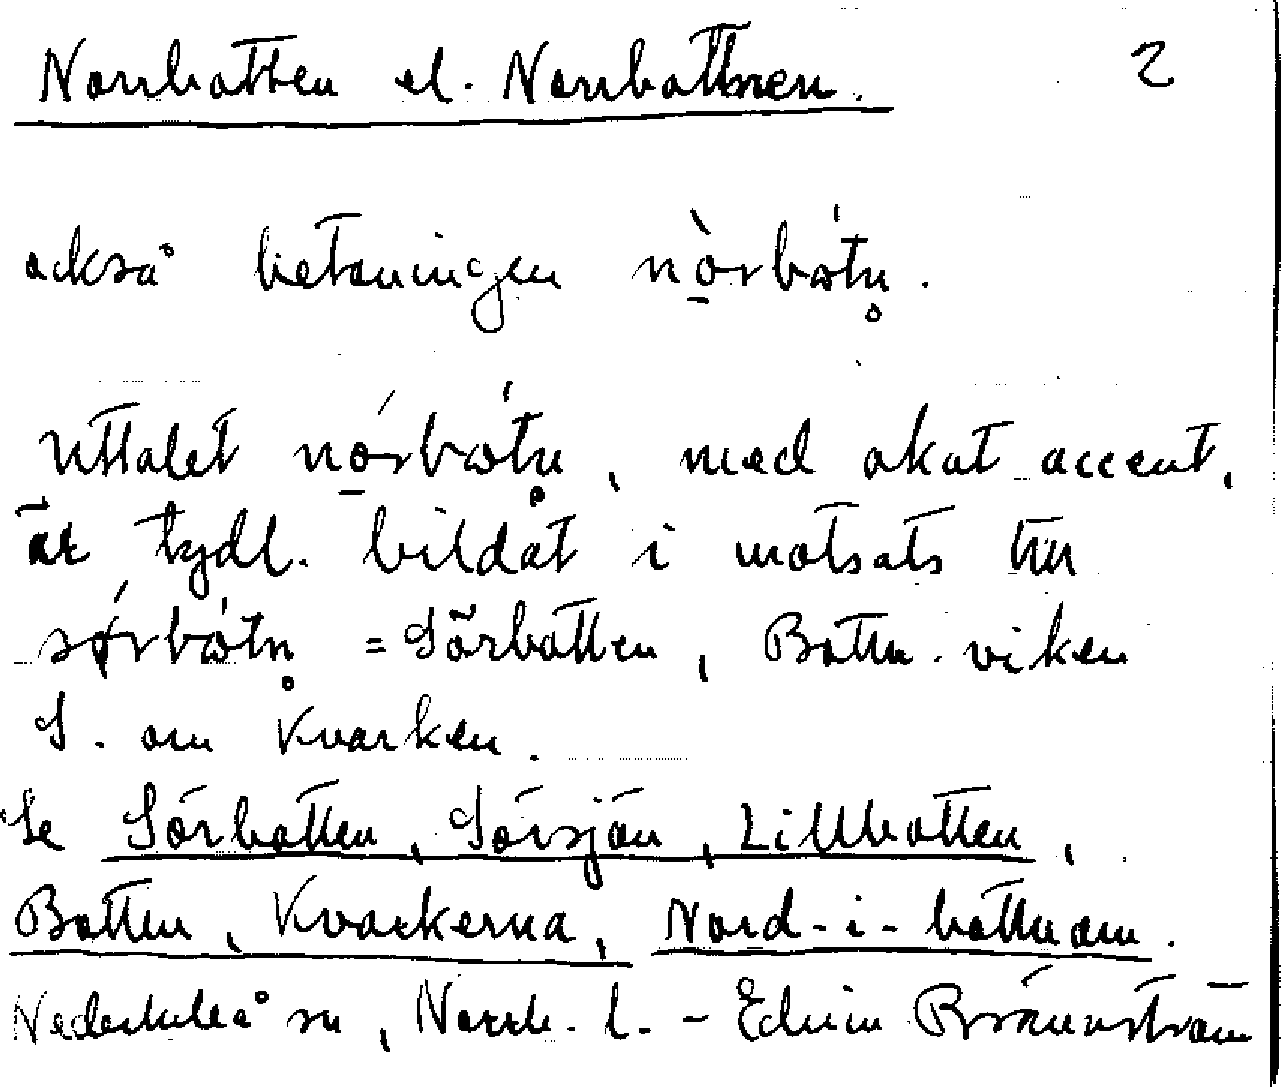 Norrbotten el. Norrbottnen. 2
också betoningen nò̱rbótn̥.
Uttalet nó̱rbótn̥, med akut accent,
är tydl. bildat i motsats till
sǿrbótn̥ = Sörbotten, Bottn. viken
S. om Kvarken.
Se Sörbotten, Sörsjön, Lillbotten,
Botten, Kvarkerna, Nord-i-bottnom.
Nederluleå sn, Norrb. l. - Edvin Brännström